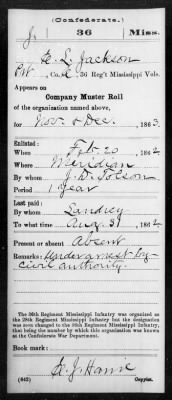 (Confederate.)
J. 36 Miss.
E. L. Jackson
Pvt, Co. C, 36 Reg't Mississippi Vols.
Appears on
Company Muster Roll
of the organization named above,
for Nov. & Dec., 1863.
Enlisted:
When Feb 20, 1862
Where Meridian
By whom J. D. Tolson
Period 1 year
Last paid:
By whom Landrey
To what time Aug. 31, 1862
Present or absent Absent
Remarks: Under arrest by
civil authority.
The 36th Regiment Mississippi Infantry was organized as
the 28th Regiment Mississippi Infantry but the designation
was soon changed to the 36th Regiment Mississippi Infantry,
that being the number by which it was known and recognized at
the Confederate War Department.
Book mark:
(642)
Copyist.